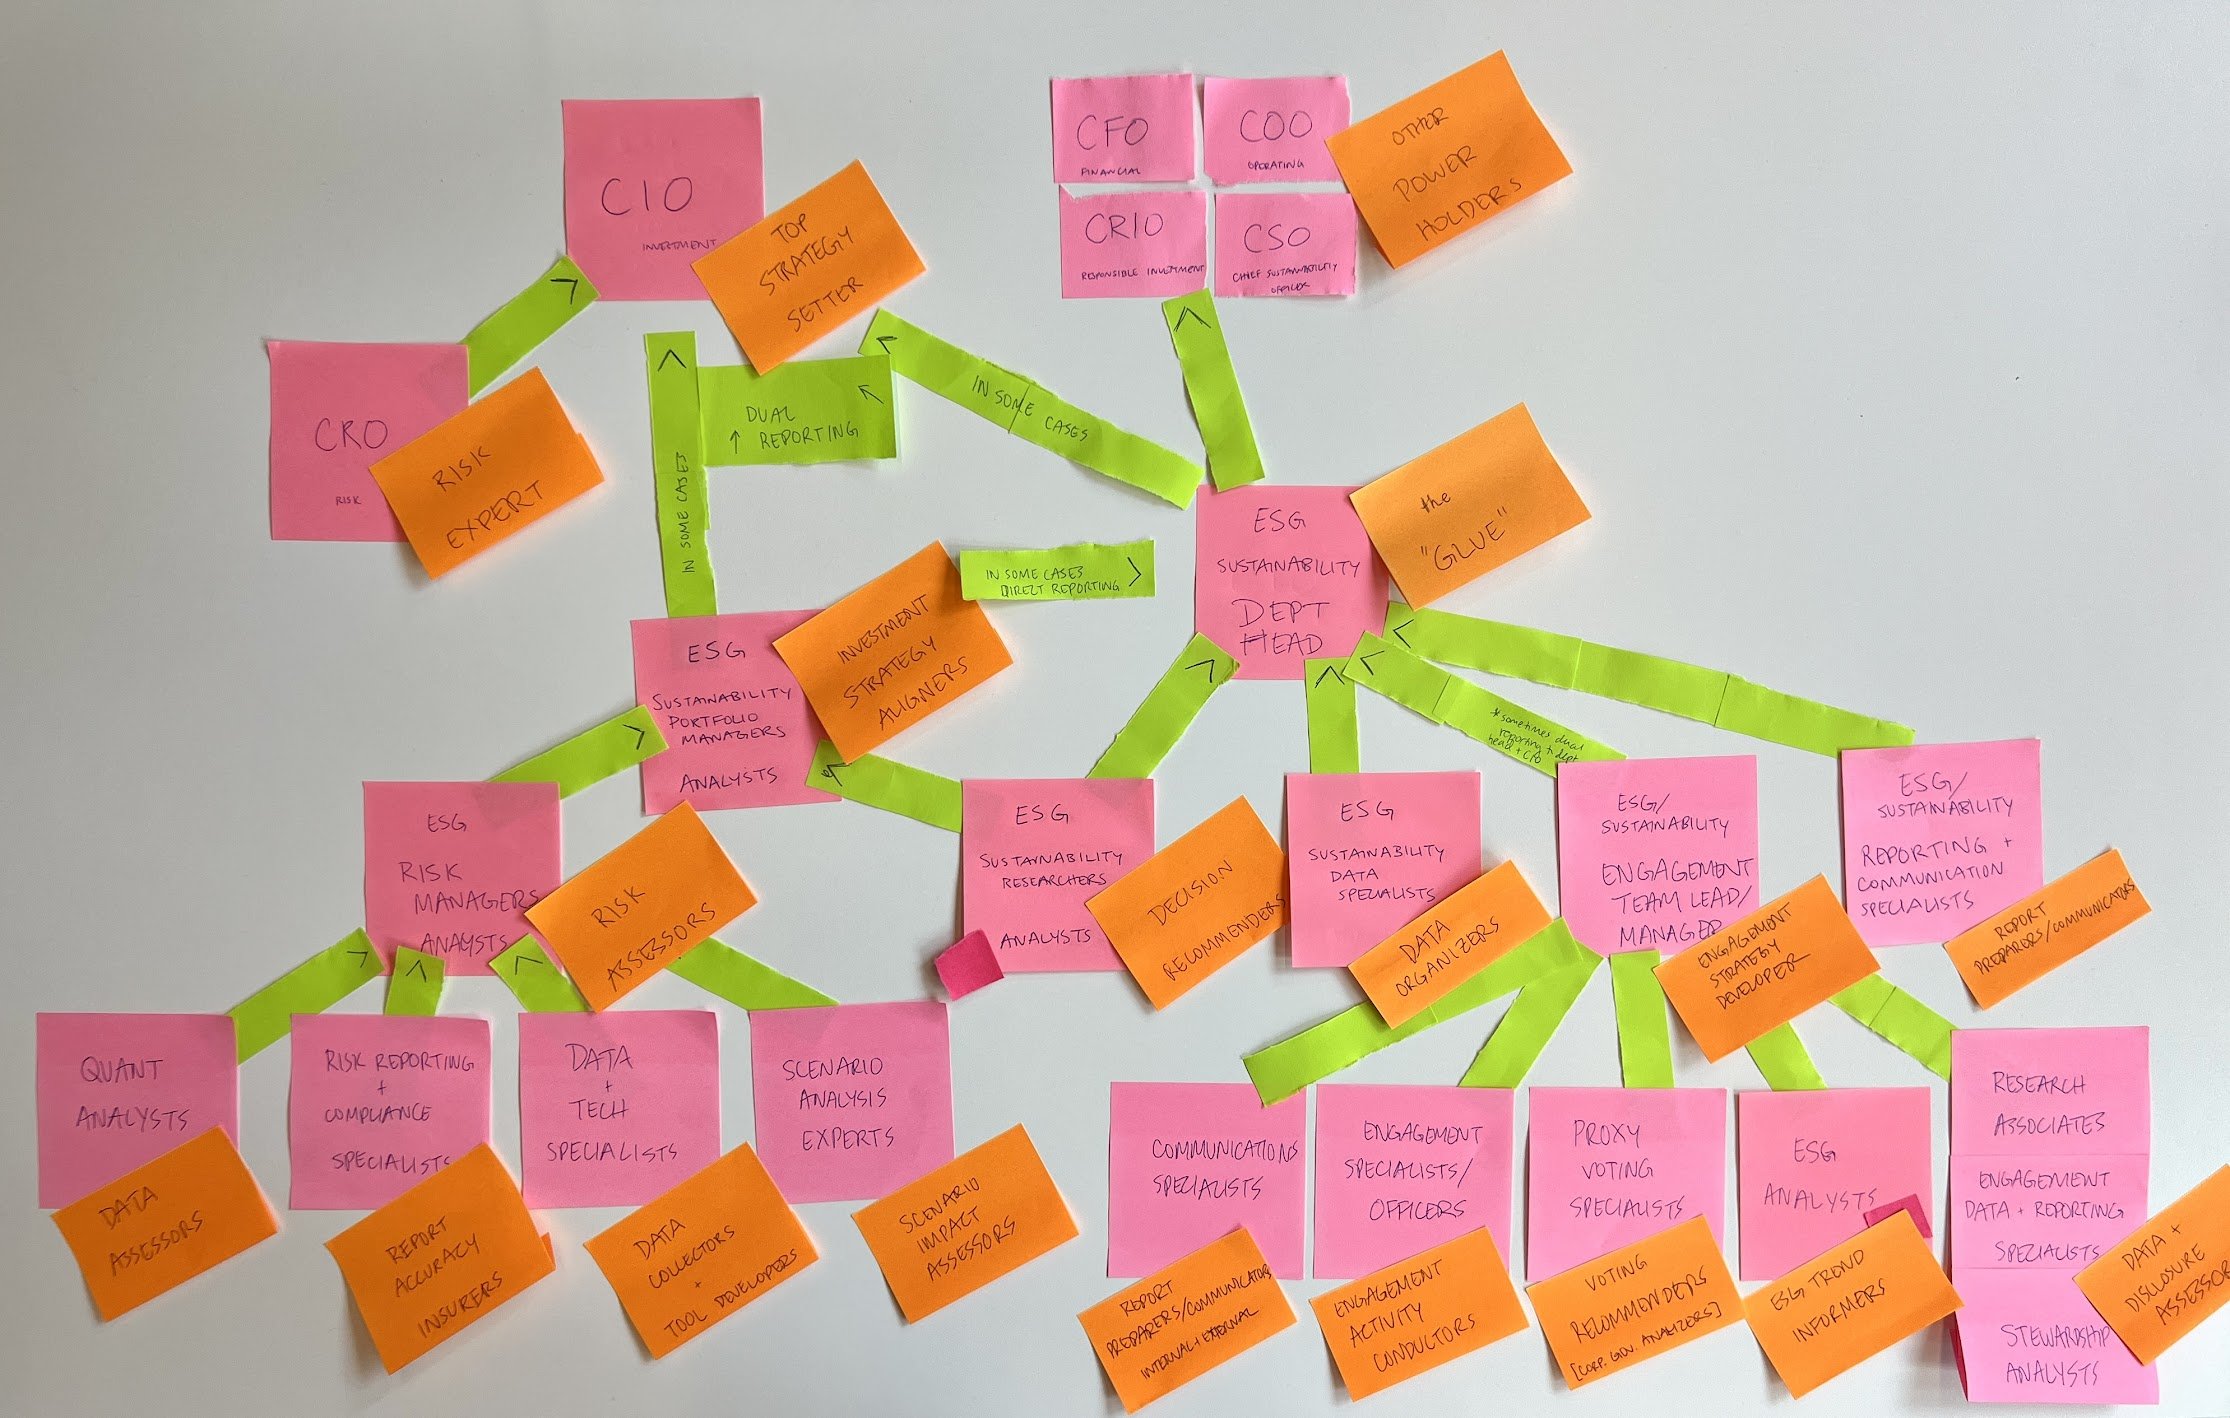 CIO
INVESTMENT
TOP
STRATEGY
SETTER
CFO
FINANCIAL
COO
OPERATING
CRIO
RESPONSIBLE INVESTMENT
CSO
CHIEF SUSTAINABILITY
OFFICER
OTHER
POWER
HOLDERS
CRO
RISK
RISK
EXPERT
IN SOME CASES
DUAL
↑ REPORTING
IN SOME CASES
ESG
SUSTAINABILITY
DEPT
HEAD
the
"GLUE"
IN SOME CASES
DIRECT REPORTING
ESG
SUSTAINABILITY
PORTFOLIO
MANAGERS
ANALYSTS
INVESTMENT
STRATEGY
ALIGNERS
* sometimes dual
reporting to dept
head + CIO
ESG
RISK
MANAGERS
ANAYSTS
RISK
ASSESSORS
ESG
SUSTAINABILITY
RESEARCHERS
ANALYSTS
DECISION
RECOMMENDERS
ESG
SUSTAINABILITY
DATA
SPECIALISTS
DATA
ORGANIZERS
ESG/
SUSTAINABILITY
ENGAGEMENT
TEAM LEAD/
MANAGER
ENGAGEMENT
STRATEGY
DEVELOPER
ESG/
SUSTAINABILITY
REPORTING +
COMMUNICATION
SPECIALISTS
REPORT
PREPARERS/COMMUNICATORS
QUANT
ANALYSTS
DATA
ASSESSORS
RISK REPORTING
+
COMPLIANCE
SPECIALISTS
REPORT
ACCURACY
INSURERS
DATA
+
TECH
SPECIALISTS
DATA
COLLECTORS
+
TOOL DEVELOPERS
SCENARIO
ANALYSIS
EXPERTS
SCENARIO
IMPACT
ASSESSORS
COMMUNICATIONS
SPECIALISTS
REPORT
PREPARERS/COMMUNICATORS
INTERNAL+EXTERNAL
ENGAGEMENT
SPECIALISTS/
OFFICERS
ENGAGEMENT
ACTIVITY
CONDUCTORS
PROXY
VOTING
SPECIALISTS
VOTING
RECOMMENDERS
[CORP. GOV. ANALYZERS]
ESG
ANALYSTS
ESG TREND
INFORMERS
RESEARCH
ASSOCIATES
ENGAGEMENT
DATA + REPORTING
SPECIALISTS
STEWARDSHIP
ANALYSTS
DATA +
DISCLOSURE
ASSESSOR